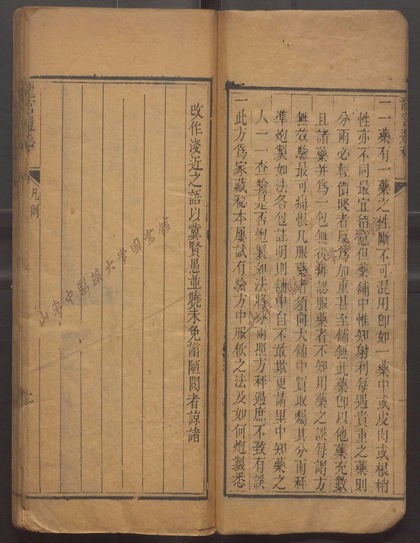 一一藥有一藥之性斷不可混用卽如一藥中或皮肉或根梢
性亦不同最宜留意但藥舖中惟知射利每遇貴重之藥則
分兩必輕價賤者反為加重甚至舖無此藥卽以他藥充數
且諸藥并為一包無從辨認服藥者不知用藥之誤每謂方
無效驗最可痛恨凡服藥者須向大舖中買取囑其分兩秤
準炮製如法各包註明則舖中自不敢欺更請里中知藥之
人一一查驗是否炮製如法將分兩照方秤過庶不致有誤
一此方為家藏秘本屢試有驗方中服飲之法及如何炮製悉
凡例
改作淺近之語以冀賢愚並曉未免謭陋閱者諒諸
山東中醫藥大學圖書館